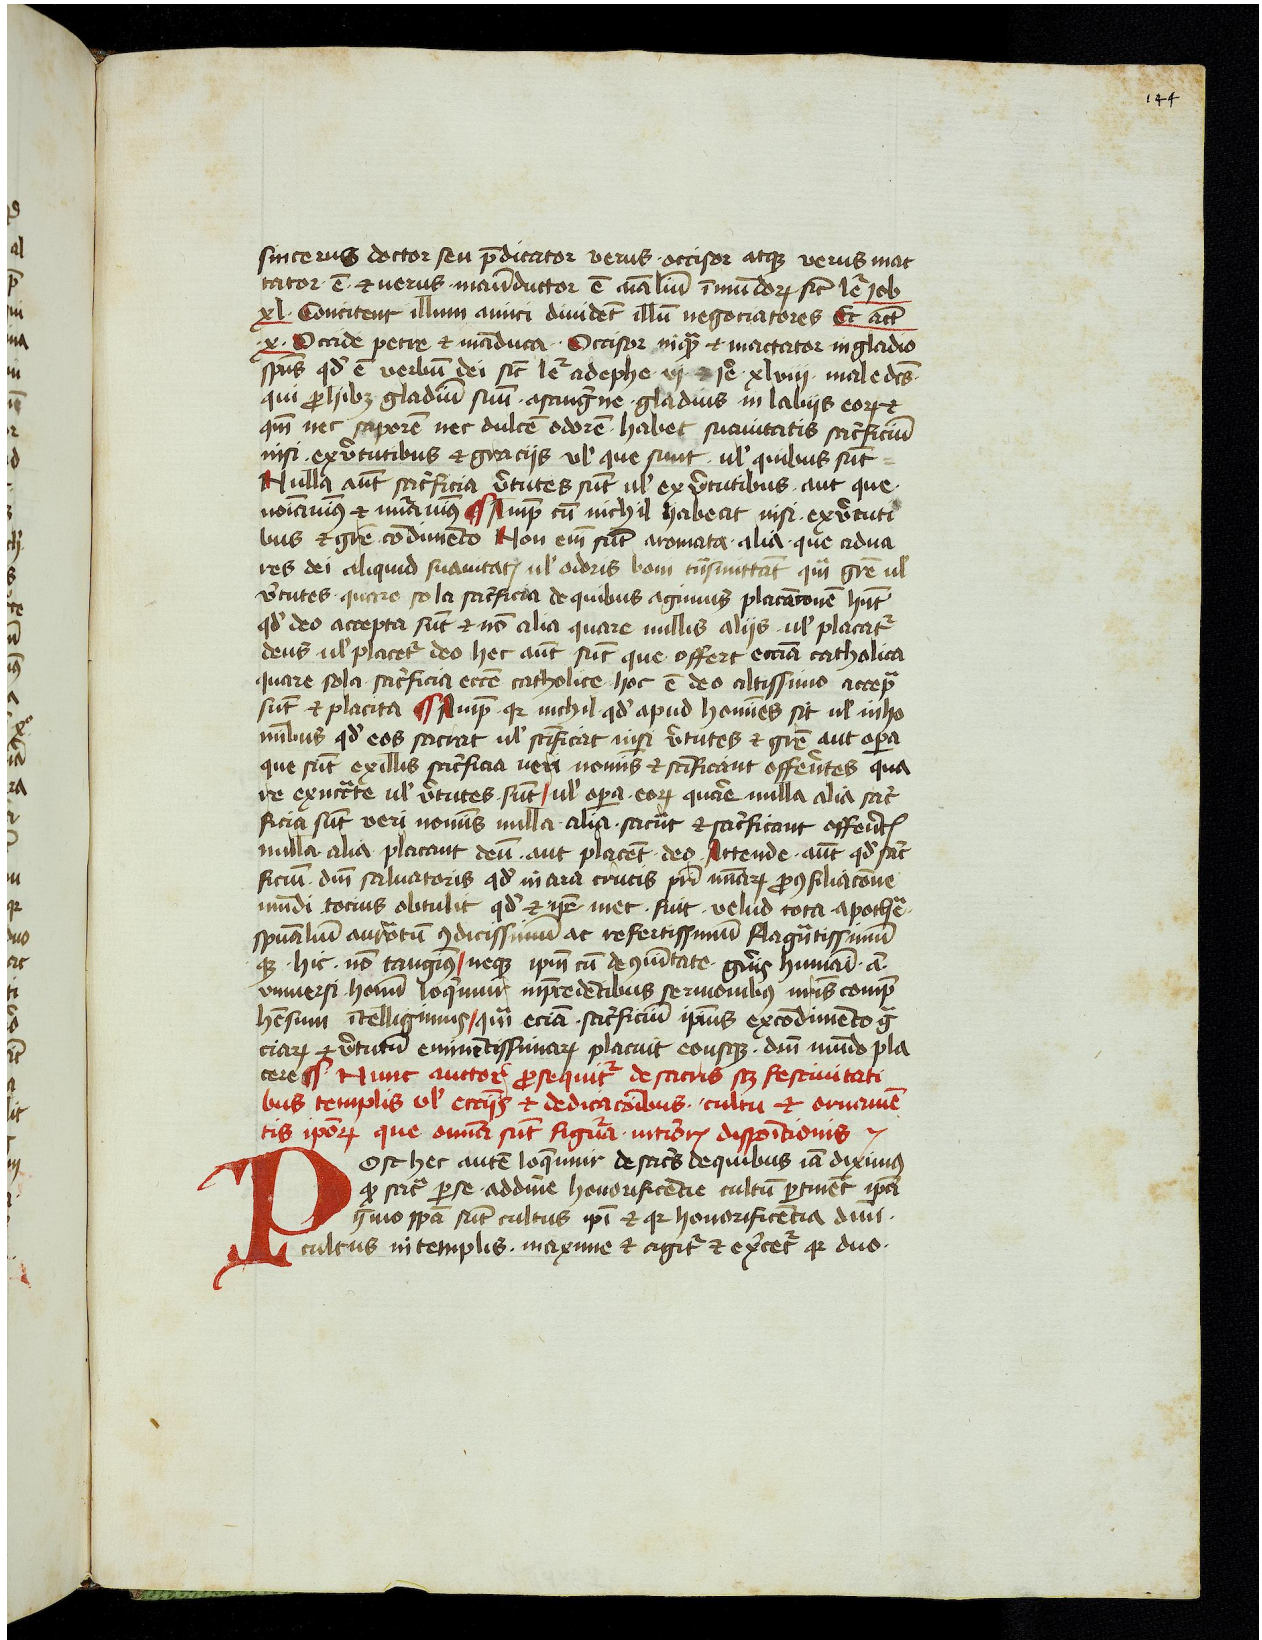 144
sincerus doctor seu p̄dicator verus occisor atqꝫ verus mac
tator ē ⁊ uerus manūductor ē aīaliū īmundoꝝ sic̄ leͬ Job
xl. Concitent illum amici diuidēt illū negociatores Et act
.x. Occide petre ⁊ māduca Occisor inqͣ ⁊ mactator in gladio
sp̄us qd̓ ē verbū dei sic̄ leͬ ad ephe vj Jeͬ xlviii maledcs̄
qui ꝓhibꝫ gladiū suū a sangͥne gladius in labiis eoꝝ ⁊
qm̄ nec saporē nec dulcē odorē habet suauitatis sacͥficiū
nisi ex v̓tutibus ⁊ gracijs ul̓ que sunt ul̓ quibus sūt
Nulla aūt sacͥficia v̓tutes sūt ul̓ ex v̓tutibus aut que
noīauimꝰ ⁊ nūauimꝰ ¶ Amp̄ cū nichil habeat nisi ex v̓tuti
bus ⁊ grē cōdimento Non em̄ sūt aromata alia que ad na
res dei aliquid suauitatꝭ ul̓ odoris boni tͣnsmittāt qͣm grē ul̓
v̓tutes quare sola sacͥficia de quibus agimus placacionē hn̄t
qd̓ deo accepta sūt ⁊ nō alia quare nullis aliis ul̓ placatͬ
deus ul̓ placetͬ deo hec aūt sūt que offert eccīa catholica
quare sola sacͥficia eccē catholice hoc ē deo altissimo accepͣ
sūt ⁊ placita ¶ Amp̄ qꝛ nichil qd̓ apud homīes sit ul̓ in ho
mībus qd̓ eos sacrat ul̓ scīficat nisi v̓tutes ⁊ grē aut opa
que sūt ex illis sacͥficia ueri nomīs ⁊ scīficant offerētes qua
re ex nccīte ul̓ v̓tutes sūt / ul̓ opa eoꝝ quare nulla alia sacͥ
ficia sūt veri nomīs nulla alia sacrāt ⁊ sacͥficant offerētꝭ
nulla alia placant deū aut placēt deo Attende aūt qd̓ sacͥ
ficiū dn̄i saluatoris qd̓ in ara crucis pr̄i
mūdi tocius obtulit qd̓ ⁊ ip̄e met fuit velud tota apothēͣ
spūaliū ꝯdicissimū ac refertissimū flagͣntissimū
qꝫ hic nō tangimꝰ / neqꝫ ip̄m cū gn̄is humani a
vniuersi homī loqͥmur in p̄cedētibus sermonibꝰ nrīs comp̄
hēsum ītelligimus / qͣm eciā sacͥficiū ip̄ius ex cōdimento gͣ
ciaꝝ ⁊ v̓tutū eminētissimaꝝ placuit eousqꝫ dn̄i mūdo pla
cere ¶ Nunc auctor ꝓsequitͬ de sacris scꝫ festiuitati
bus templis ul̓ eccīis ⁊ dedicacōibus cultu ⁊ ornamē
tis ip̄oꝝ que omīa sūt figͥa intͥorꝭ disposicionis
Post hec autē loqͥmur de sacrͥs de quibus iā diximꝰ
qꝫ sacͣ per se ad dīne honorificēcie cultū p̱tinēt ip̄a
ꝙͥmo ip̄a sūt cultus ip̄i ⁊ qꝛ honorificēcia diuīi
cultus in templis maxime ⁊ agitͬ ⁊ ex̓cetͬ qꝛ duo